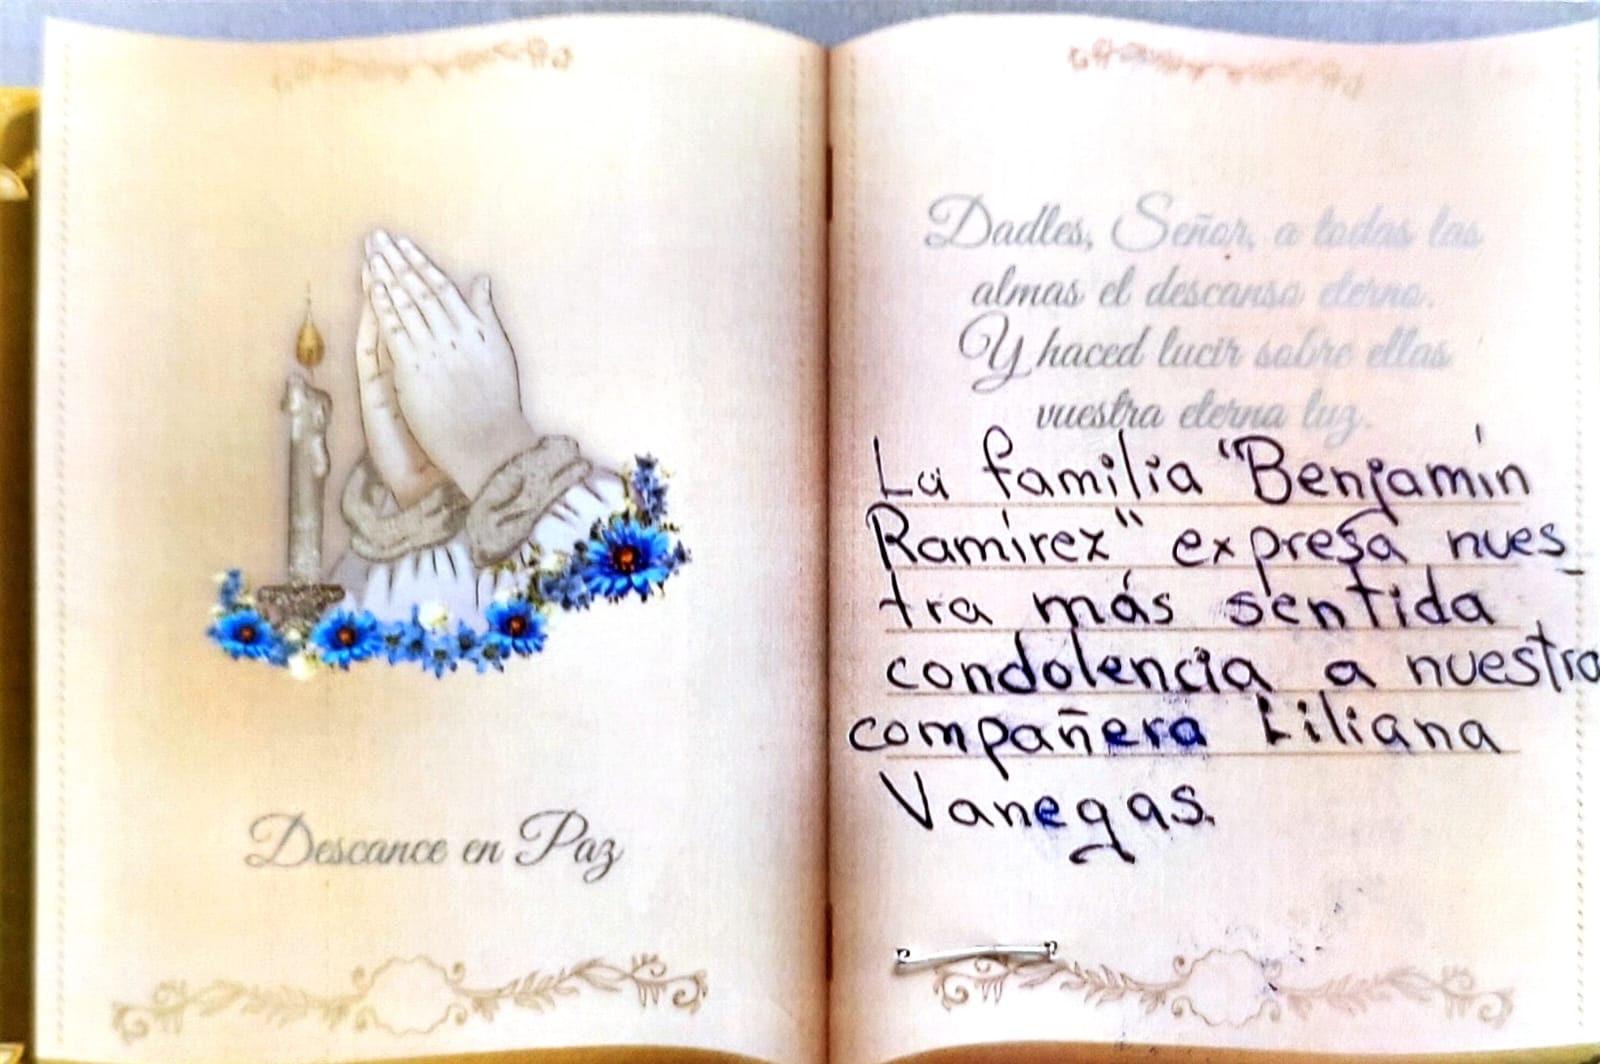 Descance en Paz
Dadles, Señor, a todas las
almas el descanso eterno.
Y haced lucir sobre ellas
vuestra eterna luz.
La familia "Benjamín
Ramírez" expresa nues_
tra más sentida
condolencia a nuestra
compañera Liliana
Vanegas.